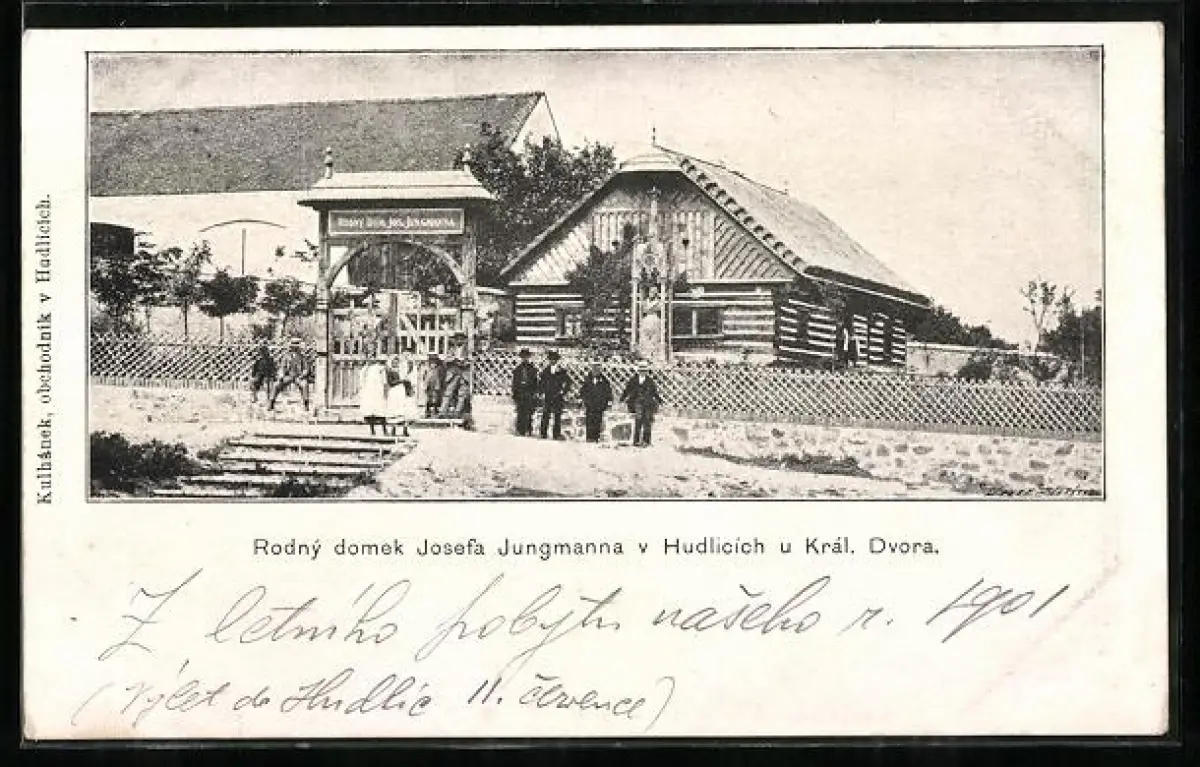 RODNÝ DŮM JOS. JUNGMANNA.
Kulhánek, obchodník v Hudlicích.
Rodný domek Josefa Jungmanna v Hudlicích u Král. Dvora.
Z letního pobytu našeho r. 1901
(Výlet do Hudlic 11. července)